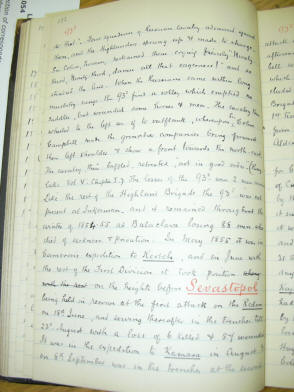 93rd
to that". Four squadrons of Russian Cavalry advanced against
them, and the Highlanders sprang up & made to charge,
Sir Colin, however, restrained them crying fiercely "Ninety
third, Ninety third, damn all that eagerness!" and so
checked the line. When the Russians came within long
musketry range the 93rd fired a volley, which emptied no
saddles, but wounded some horses & men. The cavalry then
wheeled to the left as if to outflank, whereupon Sir Colin
Campbell made the grenadier companies bring forward
their left shoulders & show a front towards the north east.
The cavalry then, baffled, retreated, not in good order. (King-
lake Vol 4. Chapter 5.) The losses of the 93rd was 2 men
Like the rest of the Highland Brigade the 93rd was not
present at Inkerman, and it remained throughout the
winter of 1854-55 at Balaclava losing 88 men who
died of sickness & privation. In May 1855 it was in
Cameron's expedition to Kertch, and in June with
the rest of the First Division it took position
on the heights before Sevastopol
being held in reserve at the first attack on the Redan
on 18th June, and serving thereafter in the trenches till
23rd August with a loss of 6 killed & 57 wounded
It was in the expedition to Kamara in August &
on 8th September was in the trenches at the second